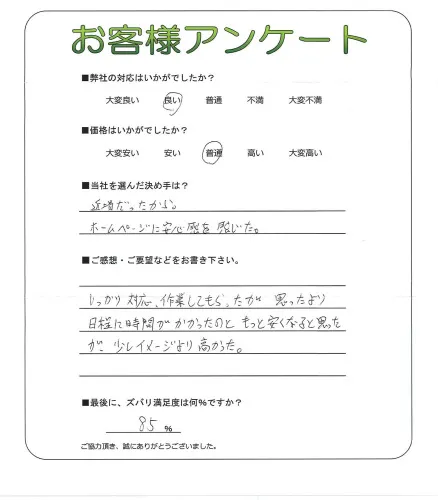 お客様アンケート
■弊社の対応はいかがでしたか？
大変良い 良い 普通 不満 大変不満
■価格はいかがでしたか？
大変安い 安い 普通 高い 大変高い
■当社を選んだ決め手は？
近場だったから
ホームページに安心感を感じた。
■ご感想・ご要望などをお書き下さい。
しっかり対応、作業してもらったが 思ったより
日程に時間がかかったのと もっと安くなると思った
が、少しイメージより高かった。
■最後に、ズバリ満足度は何％ですか？
85 %
ご協力頂き、誠にありがとうございました。